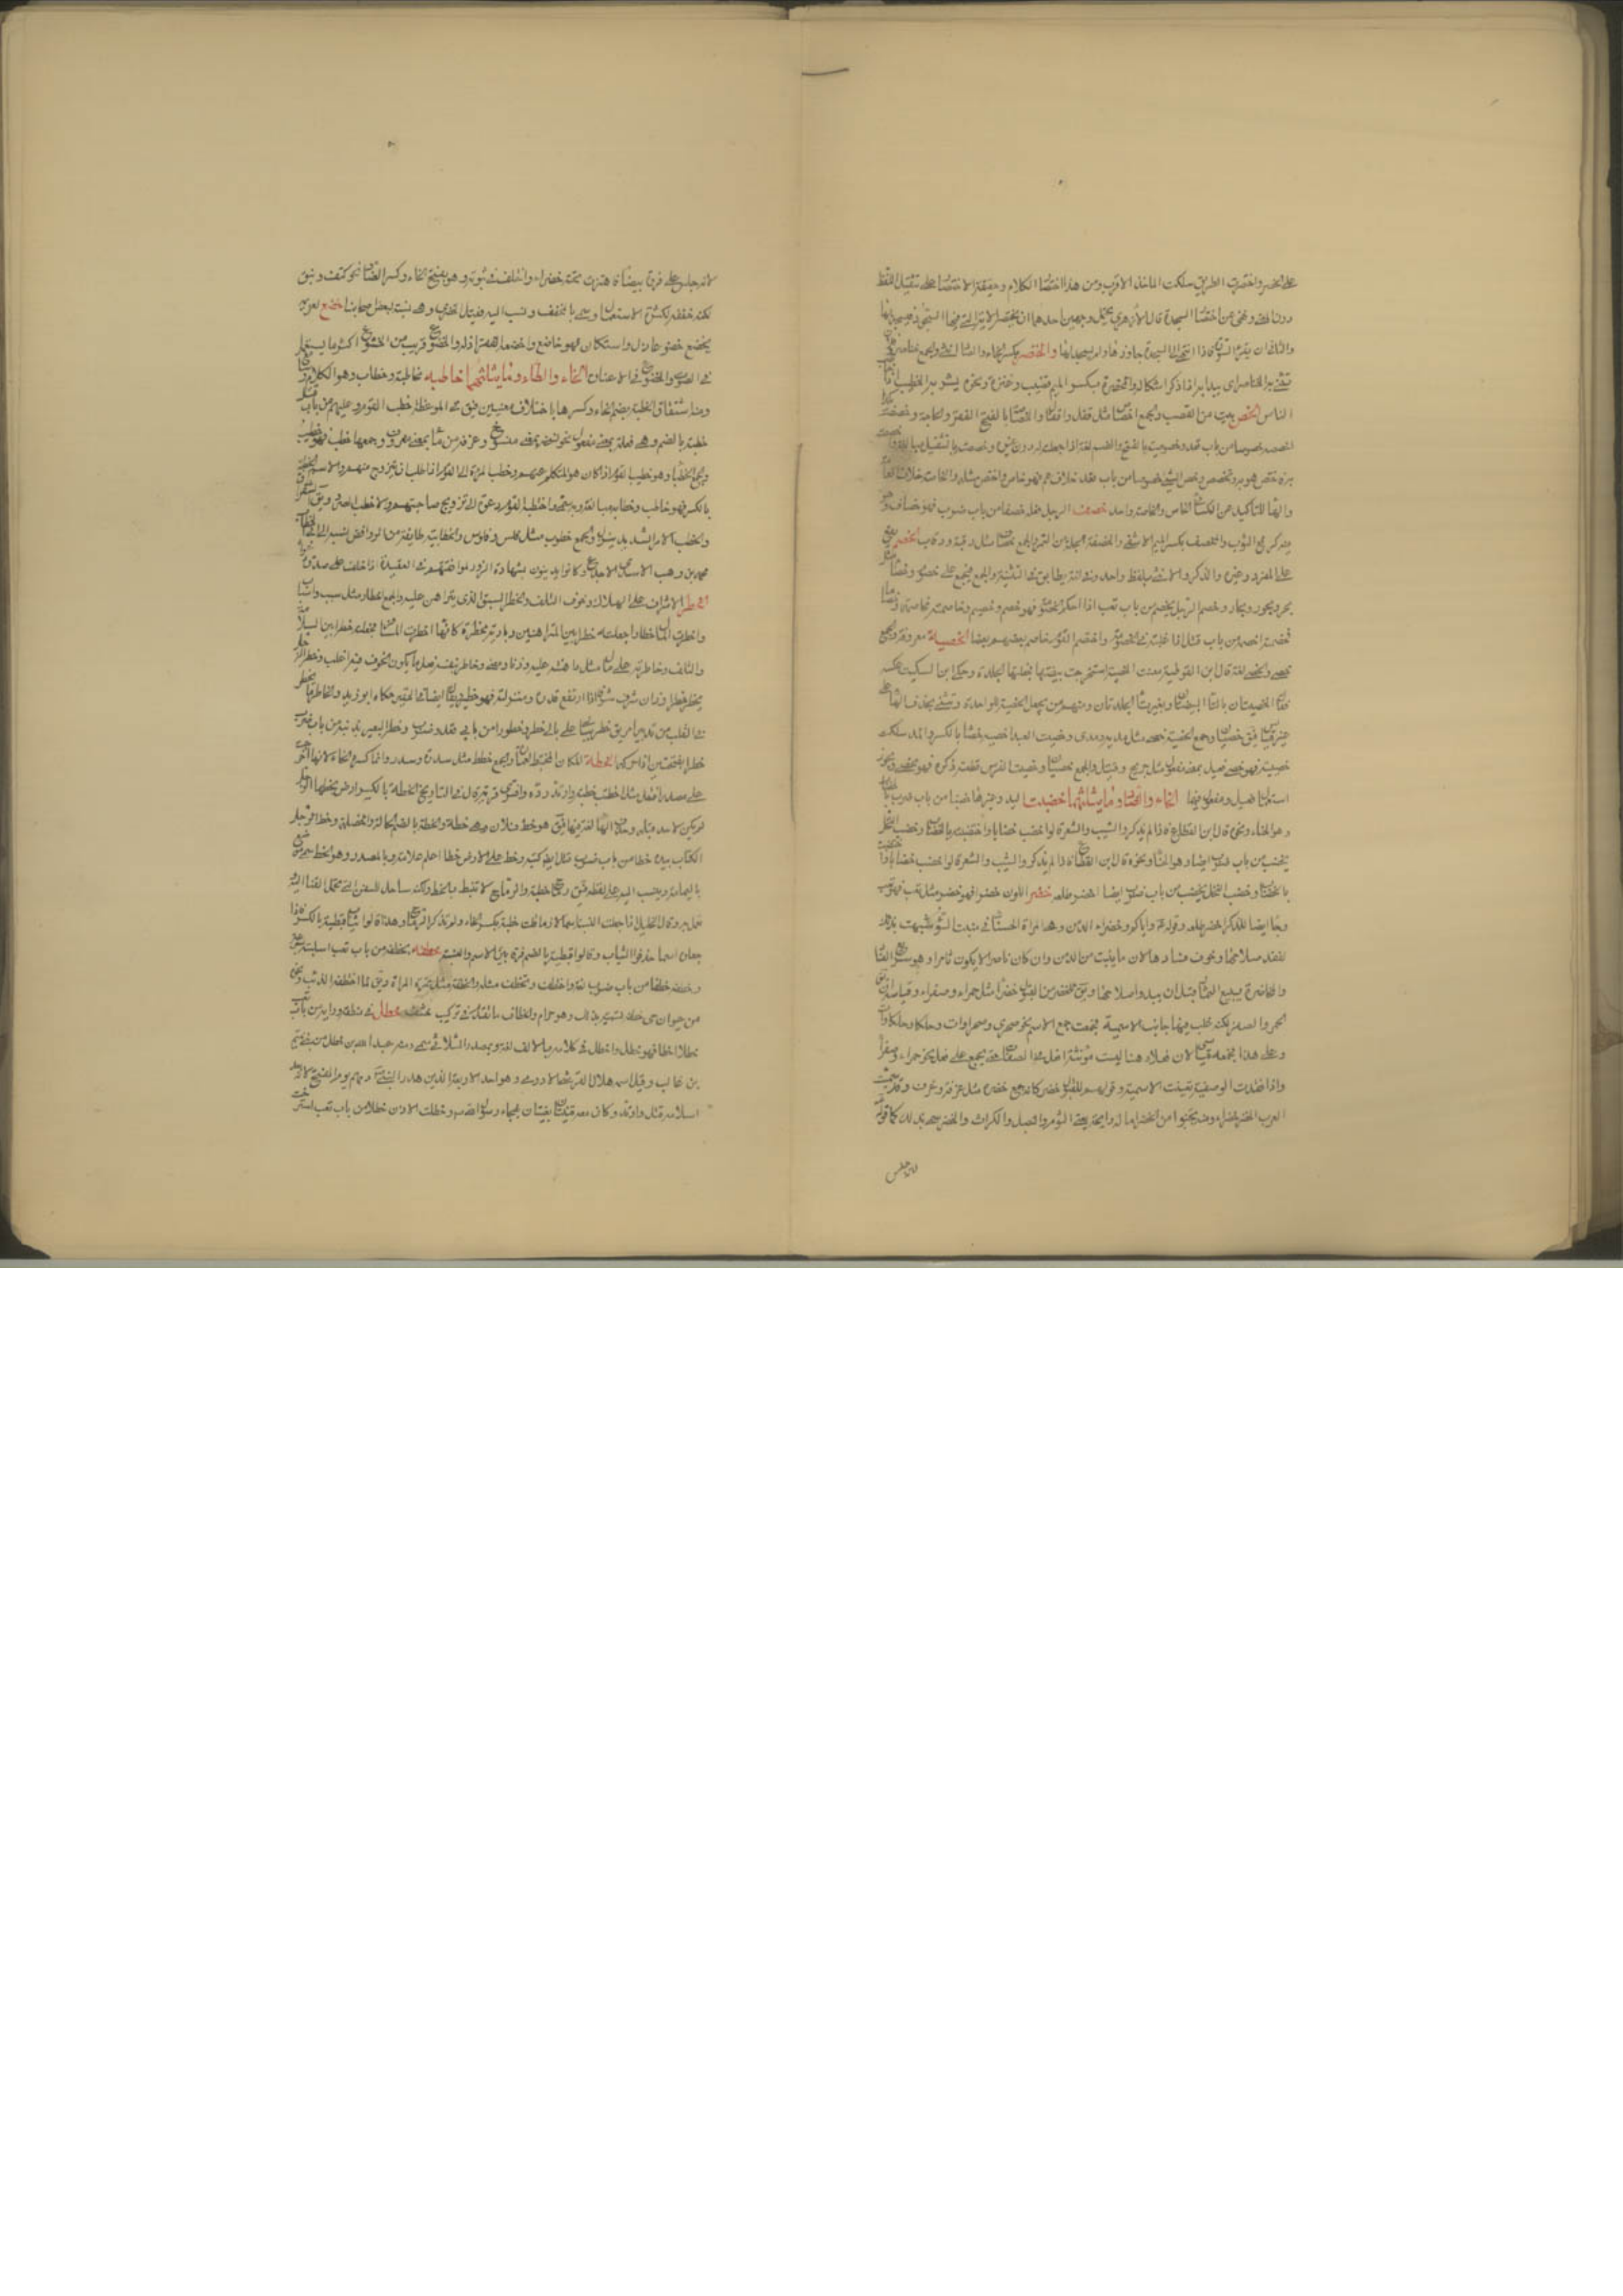 على الخصر واختصرت الطريق سلكت المأخذ الاقرب ومن هذا اختصا الكلام وحقيقة الاختصا على تقليل اللفظ
دون المعنى ونهى عن اختصا السجدة قال الازهري يحتمل وجهين احدهما ان يختصر الاية التي فيها السجود فيسجد بها
والثاني ان يقرأ السورة فاذا انتهى الى السجدة جاوزها ولم يسجد لها والخنصر بكسر الخاء والصا انثى والجمع خناصر
تثنى به الخناصر اي يبدأ به اذا ذكر اشكاله والمخصرة بكسر الميم قضيب وعنزة ونحوه يشير به الخطيب اذا خاطب
الناس الخص بيت من القصب والجمع اخصا مثل قفل واقفال والخصاصة بالفتح الفقر والحاجة وخصصته
اخصه خصوصا من باب قعد وخصوصية بالفتح والضم لغة اذا جعلته له دون غيره وخصصته بالتثقيل مبالغة
به فاختص هو به وتخصص وخص الشيء خصوصا من باب قعد خلاف عم فهو خاص واختص مثله والخاصة خلاف العامة
والها للتأكيد وعن الكسائي الخاص والخاصة واحد خصف الرجل نعله خصفا من باب ضرب فهو خصاف وهو
فيه كرقع الثوب والمخصف بكسر الميم الاشفى والخصفة الجلة من التمر والجمع خصاف مثل رقبة ورقاب الخصم يقع
على المفرد وغيره والذكر والانثى بلفظ واحد وفي لغة يطابق في التثنية والجمع فيجمع على خصوم وخصام مثل
بحر وبحور وبحار وخصم الرجل يخصم من باب تعب اذا احكم الخصومة فهو خصم وخصيم وخاصمته مخاصمة وخصاما
فخصمته اخصمه من باب قتل اذا غلبته في الخصومة واختصم القوم خاصم بعضهم بعضا الخصية معروفة والجمع
خصى والخصي لغة قال ابن القوطية معدت الخصية استخرجت بيضتها فجعلها الجلدة وحكى ابن السكيت عكسه
فقال الخصيتان بالتاء البيضتان وبغير تاء الجلدتان ومنهم من يجعل الخصية للواحدة ويثنى بحذف الهاء على
غير قياس فيق خصيان وجمع الخصية خصى مثل مدية ومدى وخصيت العبد اخصيه خصاء بالكسر والمد سللت
خصيتيه فهو خصي فعيل بمعنى مفعول مثل جريح وقتيل والجمع خصيان وخصيت الفرس قطعت ذكره فهو مخصي ويجوز
استعمال فعيل ومفعول فيهما الخاء والضاد وما يثلثهما خضبت اليد وغيرها خضبا من باب ضرب بالخضاب
وهو الحناء ونحوه قال ابن القطاع فاذا لم يذكروا الشيب والشعر قالوا خضب خضابا واختضبت بالخضاب وخضب النخل
يخضب من باب ضرب ايضا وهو الحناء ونحوه قال ابن القطاع فاذا لم يذكروا الشيب والشعر قالوا خضب خضابا واختضبت
بالخضاب وخضب النخل يخضب من باب ضرب ايضا اخضر طلعه خضر اللون خضرا فهو خضر مثل تعب فهو تعب
وجا ايضا للذكر اخضر وقوله عم واياكم وخضراء الدمن وهي المراة الحسناء في منبت السوء شبهت بذلك
لفقد صلاحها وخوف فسادها لان ما ينبت من الدمن وان كان ناضرا لا يكون ثامرا وهو سريع الفساد
والمخاضرة بيع الثمار قبل ان يبدو صلاحها ويق للخضر من البقول خضرا مثل حمراء وصفراء وقياسه ان يق
الحمر والصفر لكنه غلب فيها جانب الاسمية فجمعت جمع الاسم نحو صحرى وصحراوات وحلكا وحلكاوات
وعلى هذا فجمعه قياسي لان فعلاء هنا ليست مؤنثة افعل في الصفات حتى يجمع على فعل نحو حمراء وصفراء
واذا فقدت الوصفية تعينت الاسمية وقولهم للبقول خضر كانه جمع خضرة مثل غرفة وغرف وقد سمت
العرب الخضر خضراء ومنه تجنبوا من الخضراء ما له رائحة يعنى الثوم والبصل والكراث والخضر سمي بذلك كما قوله
لانه جلس
لانه جلس على فروة بيضا فاهتزت تحته خضراء واختلف في نبوته وهو بفتح الخاء وكسر الضا نحو كتف ونبق
لكنه خفف لكثرة الاستعمال وسمي بالمخفف ونسب اليه فقيل الخضري وهي نسبة لبعض اصحابنا خضع لغريمه
يخضع خضوعا ذل واستكان فهو خاضع واخضعه الفقر اذله والخضوع قريب من الخشوع الا ان الخشوع اكثر ما يستعمل
في الصوت والخضوع في الاعناق الخاء والطاء وما يثلثهما خاطبه مخاطبة وخطاب وهو الكلام
ومنه اشتقاق الخطبة بضم الخاء وكسرها باختلاف معنيين فيق في الموعظة خطب القوم وعليهم من باب قتل
خطبة بالضم وهي فعلة بمعنى مفعولة نحو نسخة بمعنى منسوخ وغرفة من ماء بمعنى مغروف وجمعها خطب فهو خطيب
والجمع الخطبا وهو خطيب القوم اذا كان هو المتكلم عنهم وخطب المراة الى القوم اذا طلب ان يتزوج منهم والاسم الخطبة
بالكسر فهو خاطب وخطاب مبالغة وبه سمي واختطبه القوم دعوه الى تزويج صاحبتهم والاخطب الصرد ويق الشقراق
والخطب الامر الشديد ينزل والجمع خطوب مثل فلس وفلوس والخطابية طايفة من الروافض نسبة الى ابي الخطاب
محمد بن وهب الاسدي الاجدع وكانوا يدينون بشهادة الزور لموافقهم في العقيدة اذا حلف على صدق دعواه
الخطر الاشراف على الهلاك وخوف التلف والخطر السبق الذي يتراهن عليه والجمع اخطار مثل سبب واسباب
واخطرت المال اخطارا جعلته خطرا بين المتراهنين وبادية مخطرة كانها اخطرت المسافر فجعلته خطرا بين السلامة
والتلف وخاطرته على مال مثل راهنته عليه وزنا ومعنى وخاطر بنفسه فعل ما يكون الخوف فيه اغلب وخطر الرجل
يخطر خطرا وزان شرف شرفا اذا ارتفع قدره ومنزلته فهو خطير ويقال ايضا في الحقير حكاه ابو زيد والخاطر ما يخطر
في القلب من تدبير امر يق خطر ببالي وعلى بالي خطرا وخطورا من بابي ضرب وقعد وخطر البعير بذنبه من باب ضرب
خطرا بفتحتين اذا حركه الخطة المكان المختط لعمارة والجمع خطط مثل سدرة وسدر وانما كسرت الخاء لانها اخرجت
على مصدر افتعل مثل اختطب خطبة وارتد ردة وافترى فرية قال في البارع الخطة بالكسر ارض يختطها الرجل
لم يكن لاحد قبله وحذف الها لغة فيها فيق هو خط فلان وهي خطة والخطة بالضم الحالة والخصلة وخط الرجل
الكتاب بيده خطا من باب قتل ايضا كتبه وخط على الارض خطا اعلم علامة وبالمصدر وهو الخط سمي موضع
باليمامة وينسب اليه على لفظه فيق رماح خطية والرماح لا تنبت بالخط ولكنه ساحل للسفن التي تحمل القنا اليه
تعمل به وقال الخليل اذا جعلت النسبة اسما لازما قلت خطية بكسر الخاء ولم تذكر الرماح وهذا كما قالوا ثياب قبطية بالكسر فاذا
جعلوه اسما حذفوا الثياب وقالوا قبطية بالضم فرقا بين الاسم والنسبة خطفه يخطفه من باب تعب استلبه بسرعة
وخطفه خطفا من باب ضرب لغة واختطف وتخطف مثله والخطفة مثل تمرة المراة ويق لما اختطفه الذئب ونحوه
من حيوان حي خطفة تسمية بذلك وهو حرام والخطاف ما تقدم في تركيب خشف خطل في منطقه ورايه من باب تعب
خطلا اخطا فهو خطل واخطل في كلامه بالالف لغة وبمصدر الثلاثي سمي ومنه عبد الله بن خطل من بني تيم
بن غالب وقيل اسمه هلال القرشي الادرمي وهو احد الاربعة الذين هدر النبي ص دمهم يوم الفتح لانه بعد
اسلامه قتل وارتد وكان معه قينتان تغنيان بهجاء رسول الله ص وخطلت الاذن خطلا من باب تعب استرخت